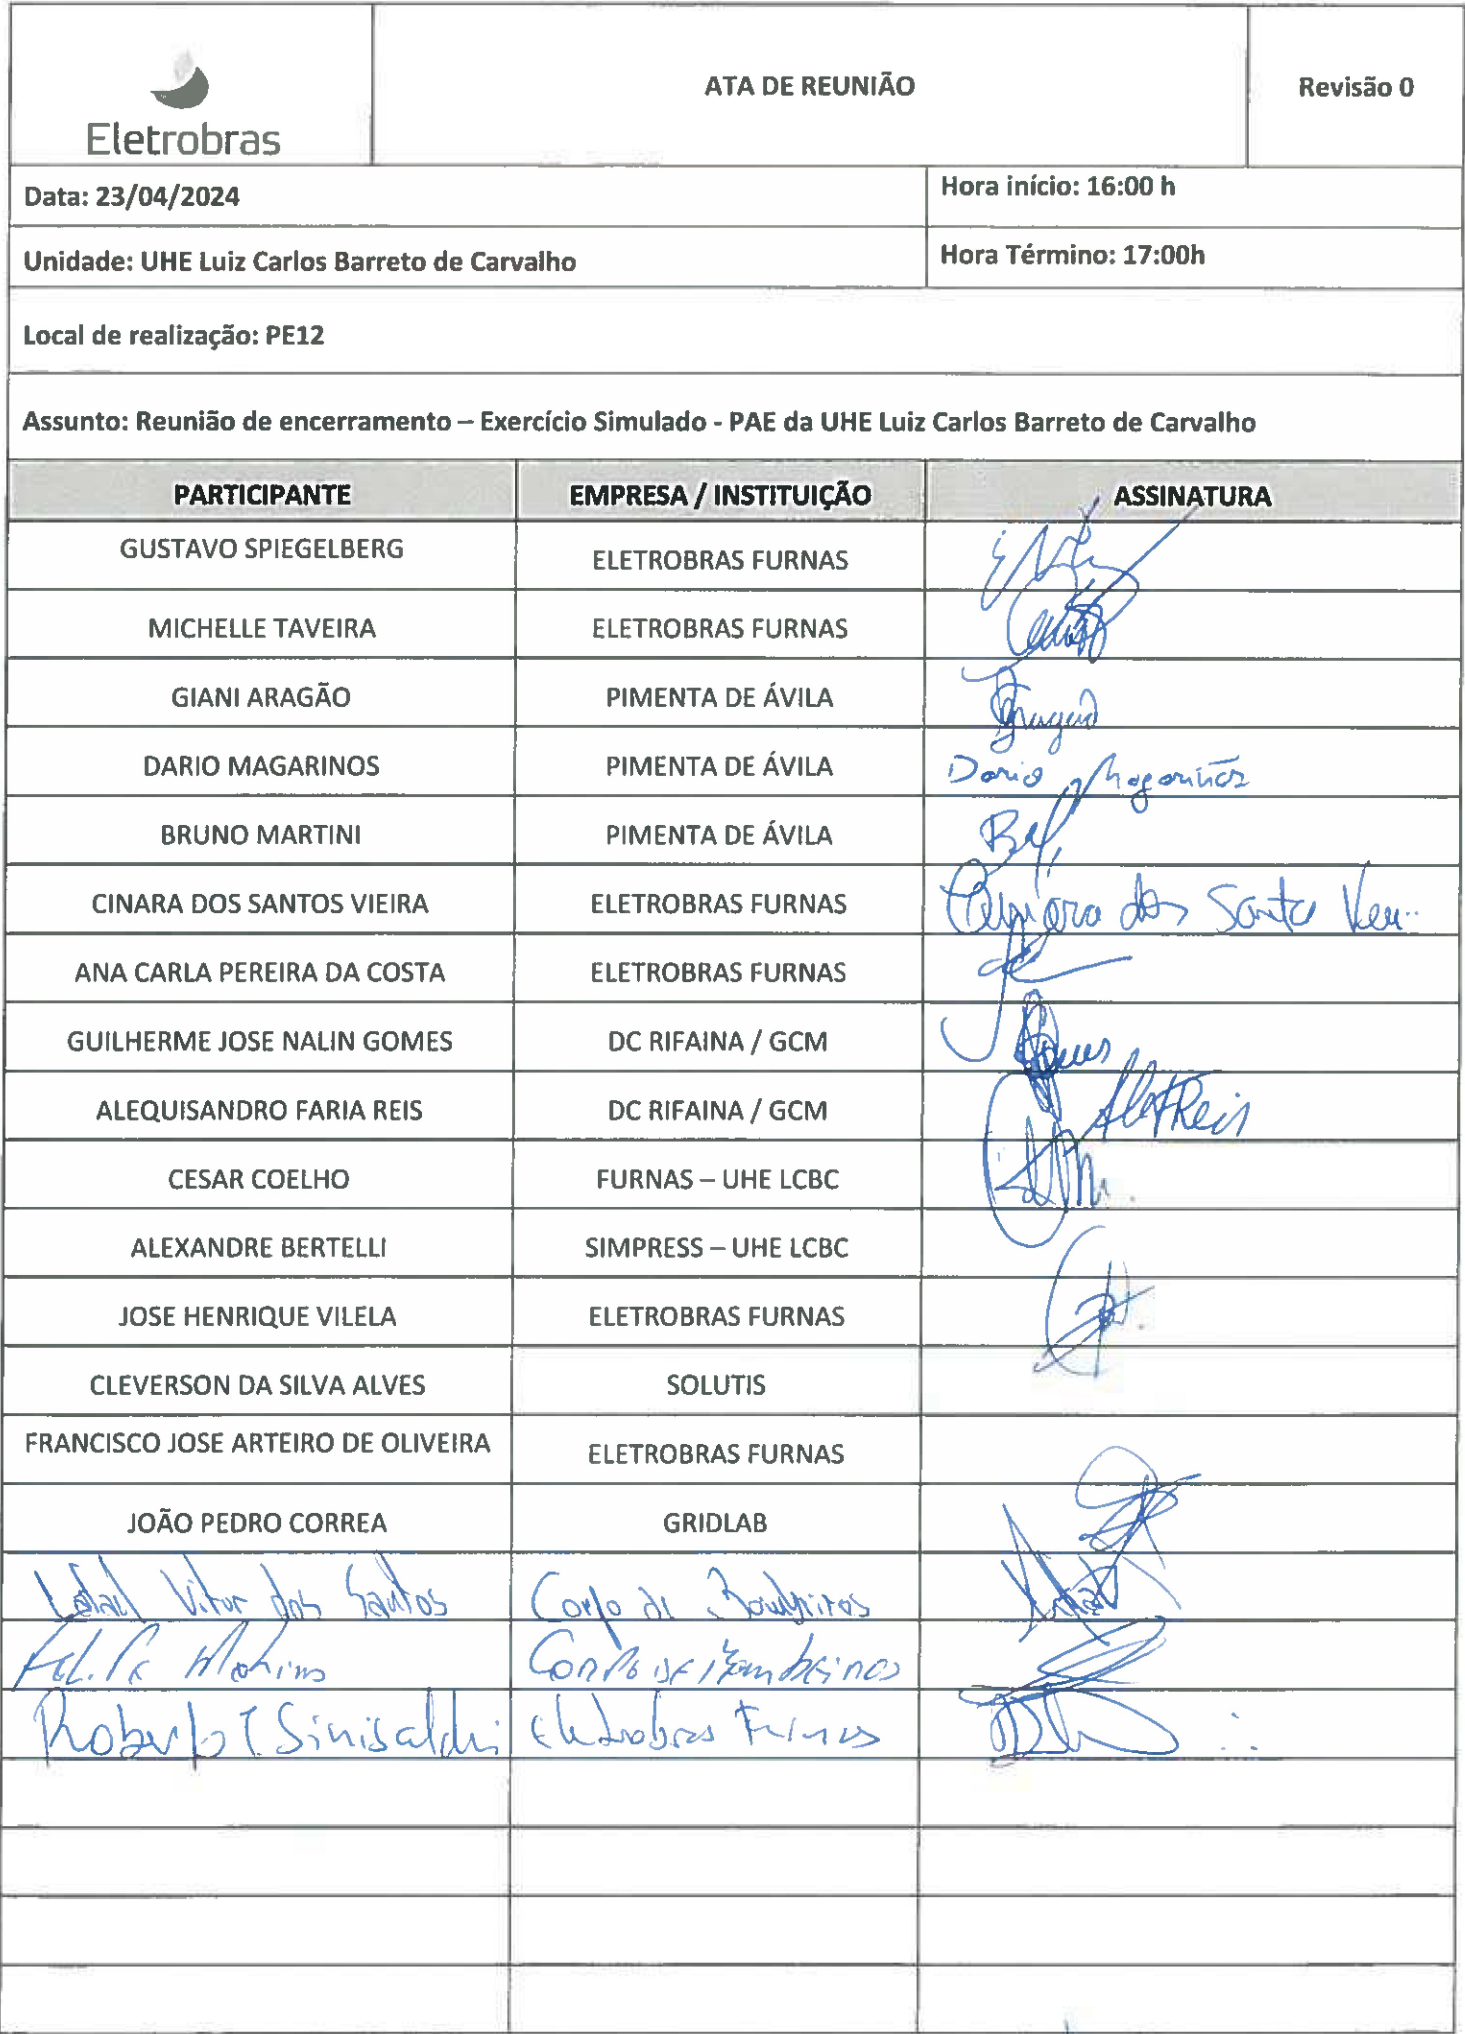 Eletrobras
ATA DE REUNIÃO
Revisão 0
Data: 23/04/2024
Hora início: 16:00 h
Unidade: UHE Luiz Carlos Barreto de Carvalho
Hora Término: 17:00h
Local de realização: PE12
Assunto: Reunião de encerramento – Exercício Simulado - PAE da UHE Luiz Carlos Barreto de Carvalho
PARTICIPANTE EMPRESA / INSTITUIÇÃO ASSINATURA
GUSTAVO SPIEGELBERG ELETROBRAS FURNAS
MICHELLE TAVEIRA ELETROBRAS FURNAS
GIANI ARAGÃO PIMENTA DE ÁVILA
DARIO MAGARINOS PIMENTA DE ÁVILA Dario Magariños
BRUNO MARTINI PIMENTA DE ÁVILA
CINARA DOS SANTOS VIEIRA ELETROBRAS FURNAS dos Santos
ANA CARLA PEREIRA DA COSTA ELETROBRAS FURNAS
GUILHERME JOSE NALIN GOMES DC RIFAINA / GCM
ALEQUISANDRO FARIA REIS DC RIFAINA / GCM
CESAR COELHO FURNAS – UHE LCBC
ALEXANDRE BERTELLI SIMPRESS – UHE LCBC
JOSE HENRIQUE VILELA ELETROBRAS FURNAS
CLEVERSON DA SILVA ALVES SOLUTIS
FRANCISCO JOSE ARTEIRO DE OLIVEIRA ELETROBRAS FURNAS
JOÃO PEDRO CORREA GRIDLAB
Vitor dos Santos Corpo de Bombeiros
Felipe Corpo de Bombeiros
Roberto Eletrobras Furnas